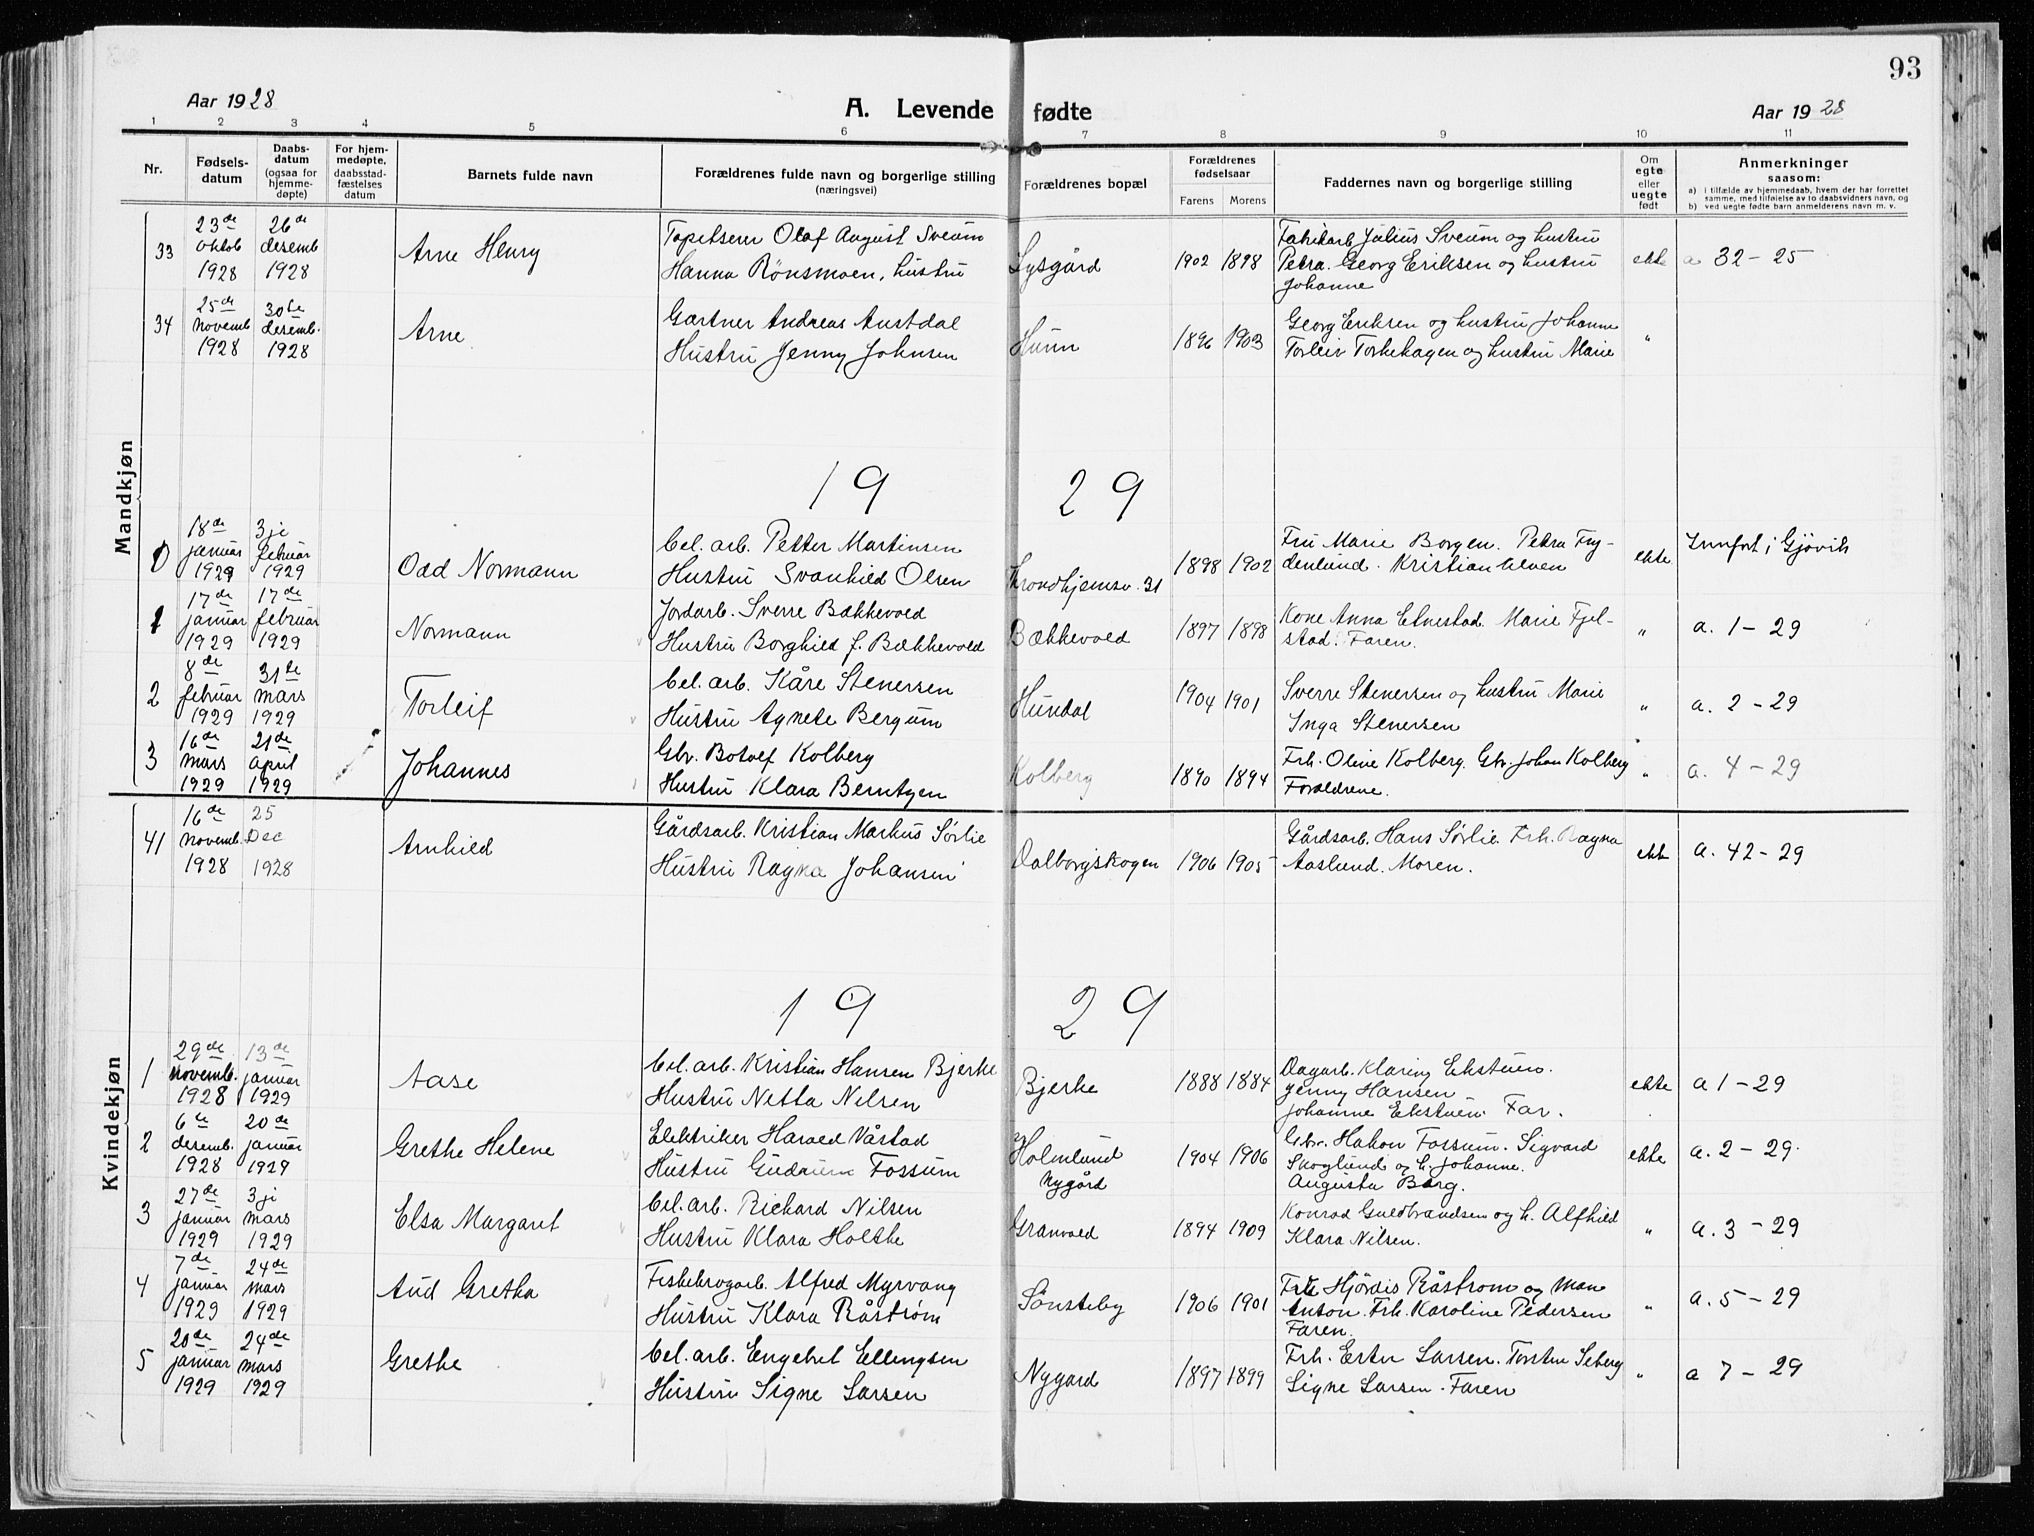 93
Aar 1928
A. Levende fødte
Aar 1928
1 2 3 4 5 6 7 8 9 10 11
Nr.
Fødsels-
datum
Daabs-
datum
(ogsaa for
hjemme-
døpte)
For hjem-
medøpte,
daabsstad-
fæstelses
datum
Barnets fulde navn
Forældrenes fulde navn og borgerlige stilling
(næringsvei)
Forældrenes bopæl
Forældrenes
fødselsaar
Farens Morens
Faddernes navn og borgerlige stilling
Om
egte
eller
uegte
født
Anmerkninger
saasom:
a) i tilfælde av hjemmedaab, hvem der har forrettet
samme, med tilføielse av to daabsvidners navn, og
b) ved uegte fødte barn anmelderens navn m. v.
Mandkjøn
33 23de oktob 1928 26de desemb 1928 Arne Henry
Tapetserer Olaf August Sveum
Hanna Rönsmoen, hustru
Lysgård 1902 1898
Fabrikarb. Julius Sveum og hustru
Petra. Georg Eriksen og hustru
Johanne
ekte a 32-25
34 25de novemb 1928 30te desemb. 1928 Arne
Gartner Andreas Austdal
Hustru Jenny Johnsen
Hunn 1896 1903
Georg Eriksen og hustru Johanne
Torleiv Torkehagen og hustru Marie
"
19 29
0 18de januar 1929 3je februar 1929 Odd Normann
Cel. arb. Petter Martinsen
Hustru Svanhild Olsen
Throndhjemsv. 31 1898 1902
Fru Marie Borgen. Petra Fry-
denlund. Kristian Ulven
ekte Innført i Gjövik
1 17de januar 1929 17de februar 1929 Normann
Jordarb. Sverre Bækkevold
Hustru Borghild f. Bækkevold
Bækkevold 1897 1898
Kone Anna Etnestad. Marie Fjel-
stad. Faren.
" a. 1-29
2 8de februar 1929 31te mars 1929 Torleif
Cel. arb. Kåre Stenersen
Hustru Agnete Bergum
Hundal 1904 1901
Sverre Stenersen og hustru Marie
Inga Stenersen
" a. 2-29
3 16de mars 1929 21de april 1929 Johannes
Gbr. Botolf Kolberg
Hustru Klara Berntzen
Kolberg 1890 1894
Frk. Oline Kolberg. Gbr. Johan Kolberg
Foreldrene.
" a. 4-29
Kvindekjøn
41 16de novemb. 1928 25 Dec 1928 Arnhild
Gårdsarb. Kristian Markus Sörlie
Hustru Ragna Johansen
Dalborgskogen 1906 1905
Gårdsarb. Hans Sörlie. Frk. Ragna
Aaslund. Moren.
ekte a. 42-29
19 29
1 29de novemb. 1928 13de januar 1929 Aase
Cel. arb. Kristian Hansen Bjerke
Hustru Netta Nilsen
Bjerke 1888 1884
Dagarb. Klaring Ekstuen.
Jenny Hansen
Johanne Ekstuen. Far.
ekte a 1-29
2 6te desemb. 1928 20de januar 1929 Grethe Helene
Elektriker Harald Våstad
Hustru Gudrun Fossum
Holmlund
Nygård 1904 1906
Gbr. Hakon Fossum. Sigvard
Skoglund og h. Johanne.
Augusta Berg.
ekte a. 2-29.
3 27de januar 1929 3je mars 1929 Elsa Margaret
Cel. arb. Richard Nilsen
Hustru Klara Holthe
Granvold 1894 1909
Konrad Guldbrandsen og h. Alfhild
Klara Nilsen.
" a. 3-29
4 7de januar 1929 24de mars 1929 Aud Gretha
Fiskekrogarb. Alfred Myrvang
Hustru Klara Råström
Sönsteby 1906 1901
Frk Hjördis Råstrøm og Man
Anton. Frk. Karoline Pedersen
Faren.
" a. 5-29
5 20de januar 1929 24de mars 1929 Grethe
Cel. arb. Engebret Ellingsen
Hustru Signe Larsen
Nygard 1897 1899
Frk. Ester Larsen. Torsten Seberg
Signe Larsen. Faren
" a 7-29